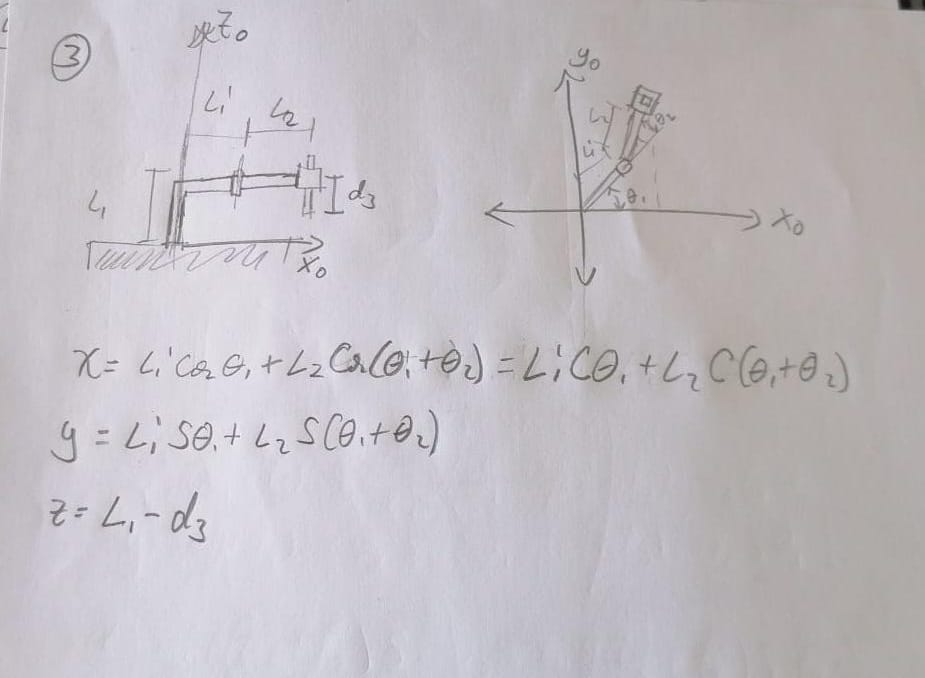 ③
Z₀
y₀
L₁' L₂
L₂ θ₂
L₁'
L₁ d₃
θ₁
X₀ X₀
x = L₁' Cos θ₁ + L₂ Cos(θ₁+θ₂) = L₁' Cθ₁ + L₂ C(θ₁+θ₂)
y = L₁' Sθ₁ + L₂ S(θ₁+θ₂)
z = L₁ - d₃